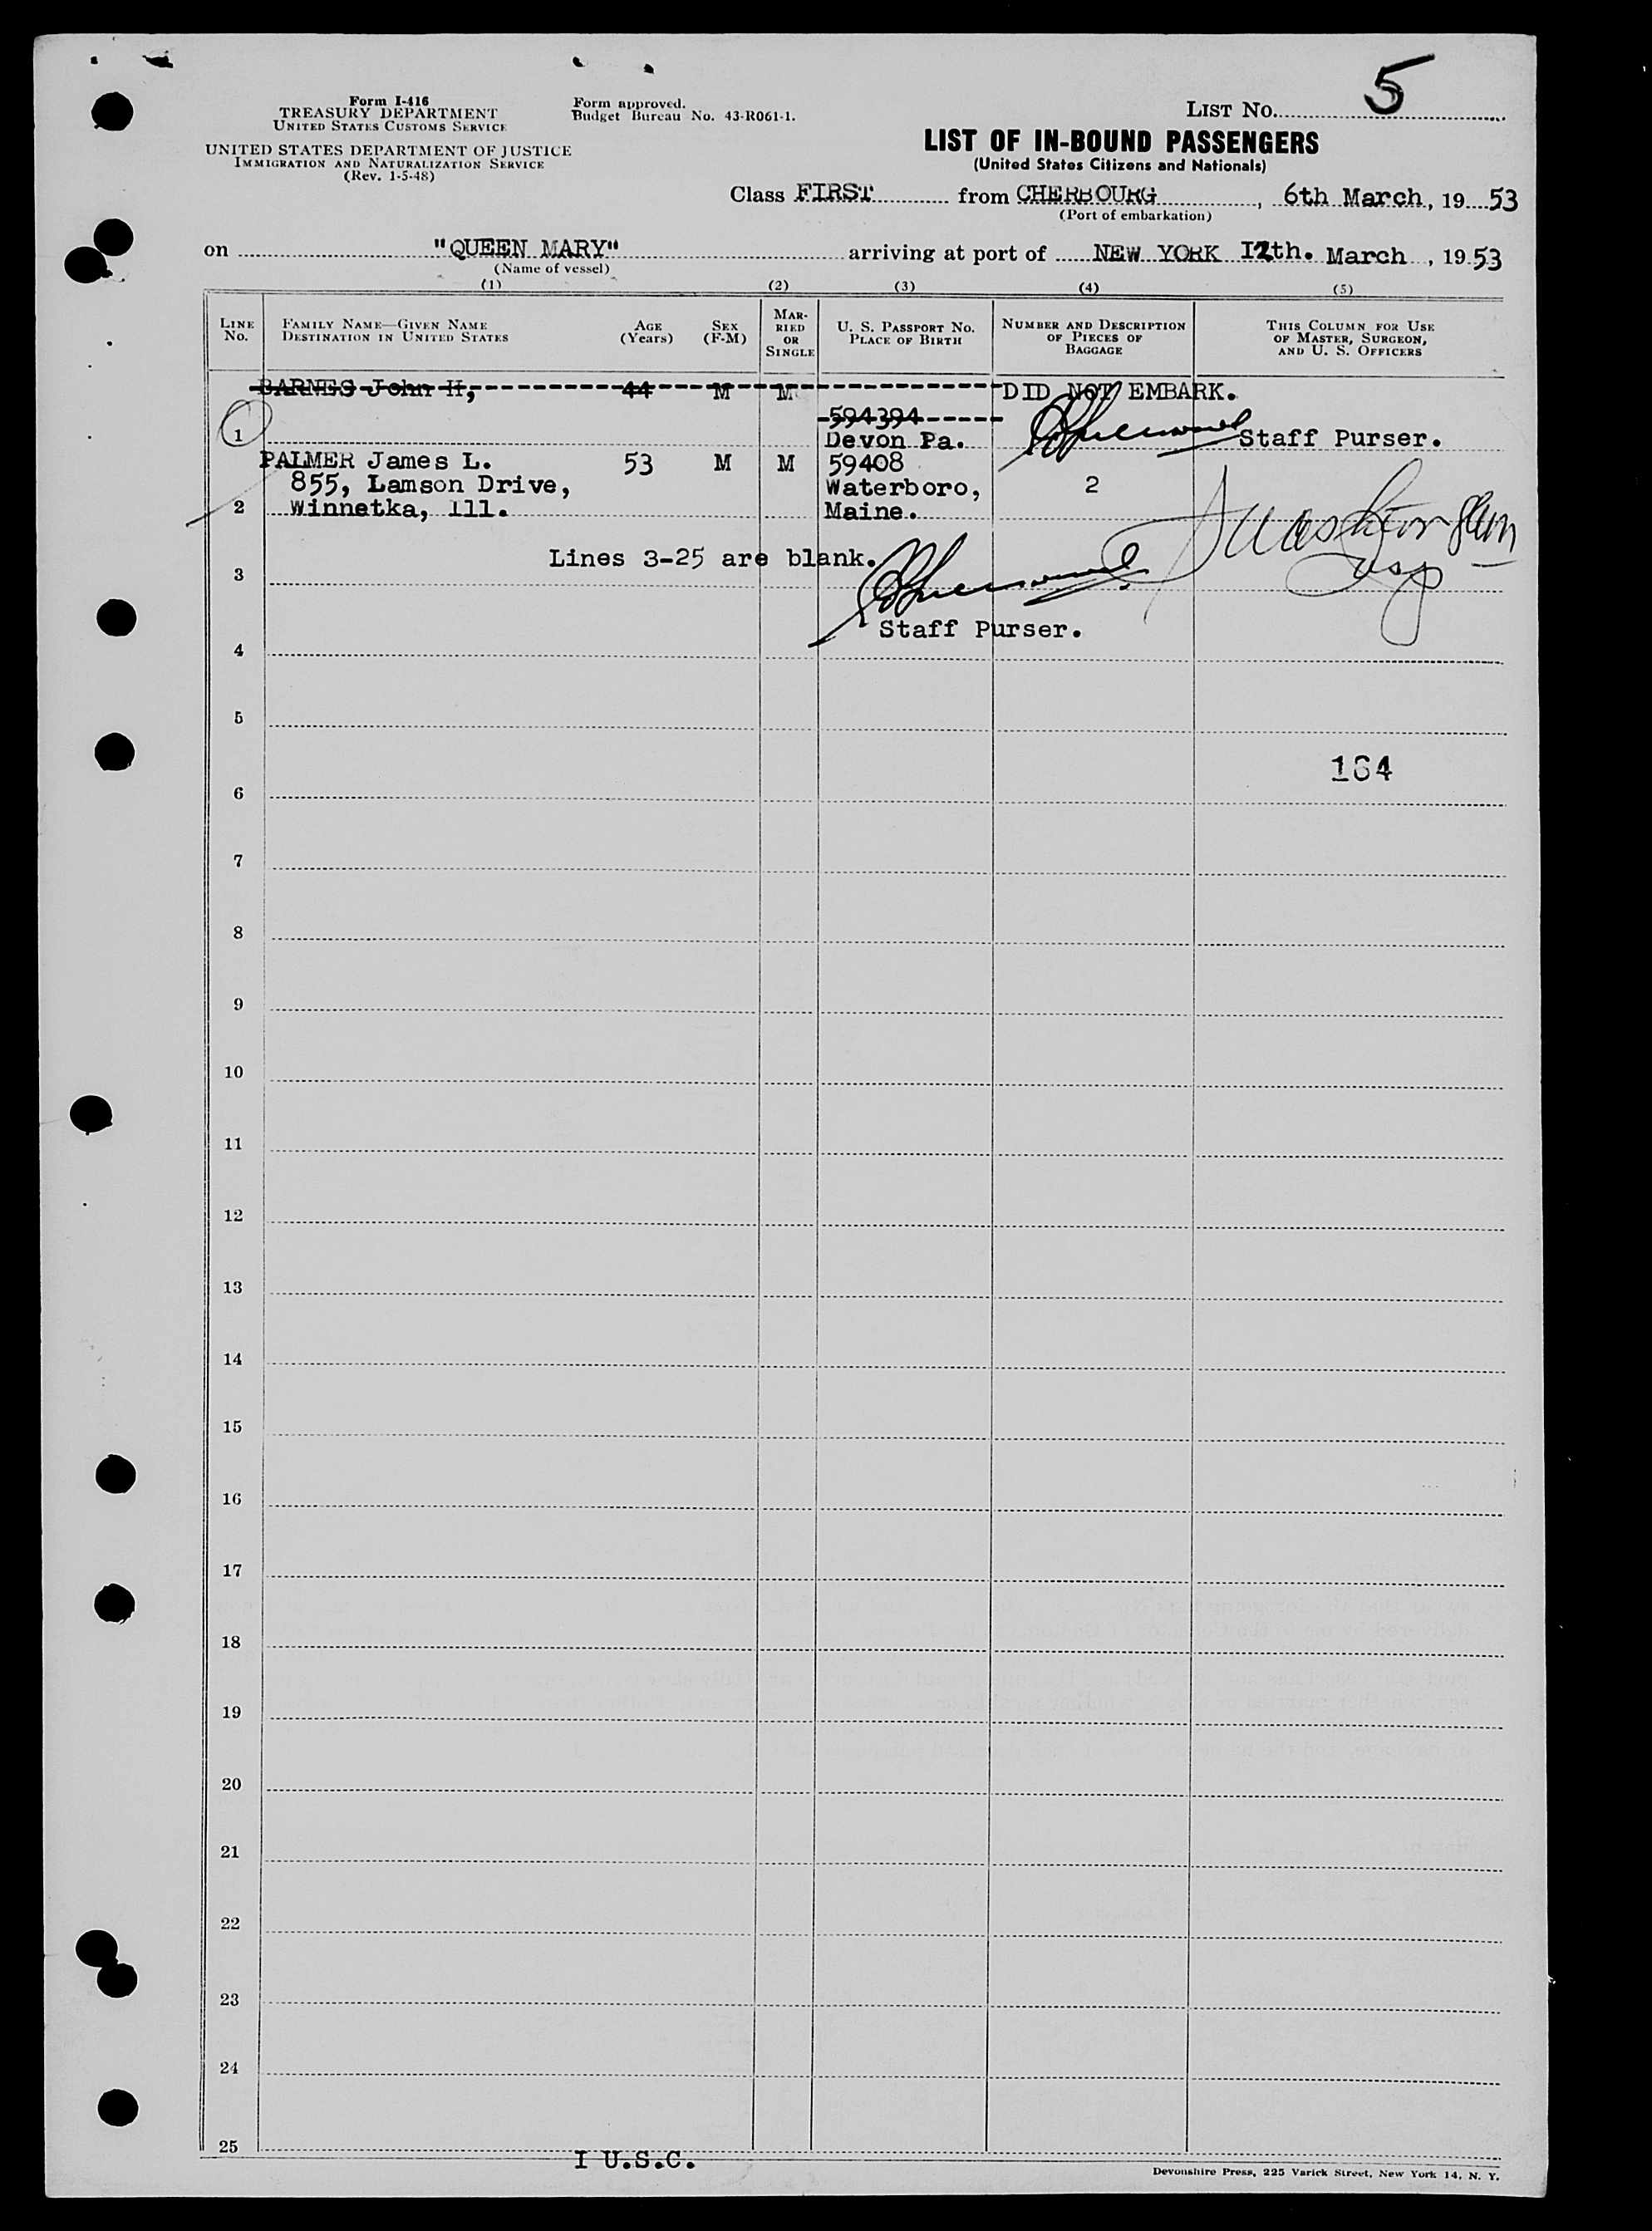 Form I-416
TREASURY DEPARTMENT
UNITED STATES CUSTOMS SERVICE
UNITED STATES DEPARTMENT OF JUSTICE
IMMIGRATION AND NATURALIZATION SERVICE
(Rev. 1-5-48)
Form approved.
Budget Bureau No. 43-R061-1.
LIST No. 5
LIST OF IN-BOUND PASSENGERS
(United States Citizens and Nationals)
Class FIRST from CHERBOURG, 6th March, 19 53
(Port of embarkation)
on "QUEEN MARY" arriving at port of NEW YORK 12th. March, 19 53
(Name of vessel)
(1) (2) (3) (4) (5)
LINE No. FAMILY NAME—GIVEN NAME DESTINATION IN UNITED STATES AGE (Years) SEX (F-M) MARRIED OR SINGLE U. S. PASSPORT No. PLACE OF BIRTH NUMBER AND DESCRIPTION OF PIECES OF BAGGAGE THIS COLUMN FOR USE OF MASTER, SURGEON, AND U. S. OFFICERS
BARNES John H, 44 M M DID NOT EMBARK.
594394
1 Devon Pa. Staff Purser.
PALMER James L. 53 M M 59408
855, Lamson Drive, Waterboro, 2
2 Winnetka, Ill. Maine.
Lines 3-25 are blank.
3
Staff Purser.
4
5
164
6
7
8
9
10
11
12
13
14
15
16
17
18
19
20
21
22
23
24
25
I U.S.C.
Devonshire Press, 225 Varick Street, New York 14, N. Y.